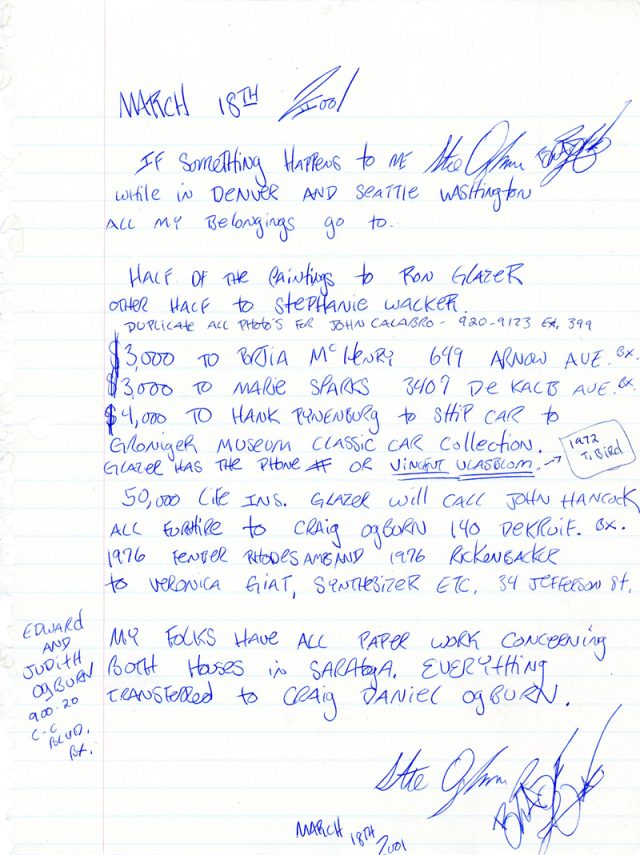 MARCH 18TH 2001
IF SOMETHING HAPPENS TO ME
WHILE IN DENVER AND SEATTLE WASHINGTON
ALL MY BELONGINGS GO TO.
HALF OF THE PAINTINGS TO RON GLAZER
OTHER HALF TO STEPHANIE WACKER.
DUPLICATE ALL PHOTO'S FOR JOHN CALABRO - 920-9123 EX. 399
$3,000 TO BRJIA McHENRY 649 ARNOW AVE. BX.
$3,000 TO MARIE SPARKS 3407 DE KALB AVE. BX.
$4,000 TO HANK PYNENBURG TO SHIP CAR TO
GRONIGER MUSEUM CLASSIC CAR COLLECTION.
GLAZER HAS THE PHONE # OR VINCENT VLASBLOM. →
1972
T. BIRD
50,000 LIFE INS. GLAZER WILL CALL JOHN HANCOCK
ALL TO CRAIG OGBURN 140 DEKRUIF. BX.
1976 FENDER RHODES AND 1976 RICKENBACKER
TO VERONICA GIAT, SYNTHESIZER ETC. 34 JEFFERSON St.
MY FOLKS HAVE ALL PAPER WORK CONCERNING
BOTH HOUSES IN SARATOGA. EVERYTHING
TRANSFERRED TO CRAIG DANIEL OGBURN.
EDWARD
AND
JUDITH
OGBURN
900-20
C-C
BLVD.
BX.
MARCH 18TH 2001